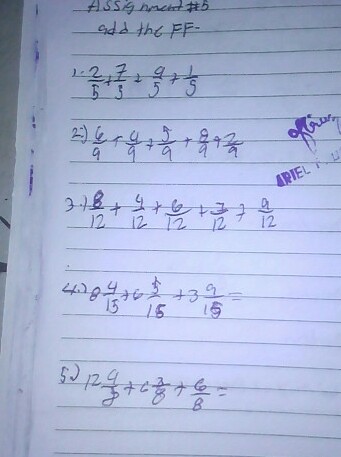 Assignment #5
add the FF-
1. 2/5 + 7/5 + 9/5 + 1/5
2.) 6/9 + 4/9 + 5/9 + 8/9 + 2/9
3.) 8/12 + 4/12 + 6/12 + 7/12 + 9/12
ARIEL
4.) 8 4/15 + 6 5/15 + 3 9/15 =
5.) 12 9/8 + 6 3/8 + 6/8 =